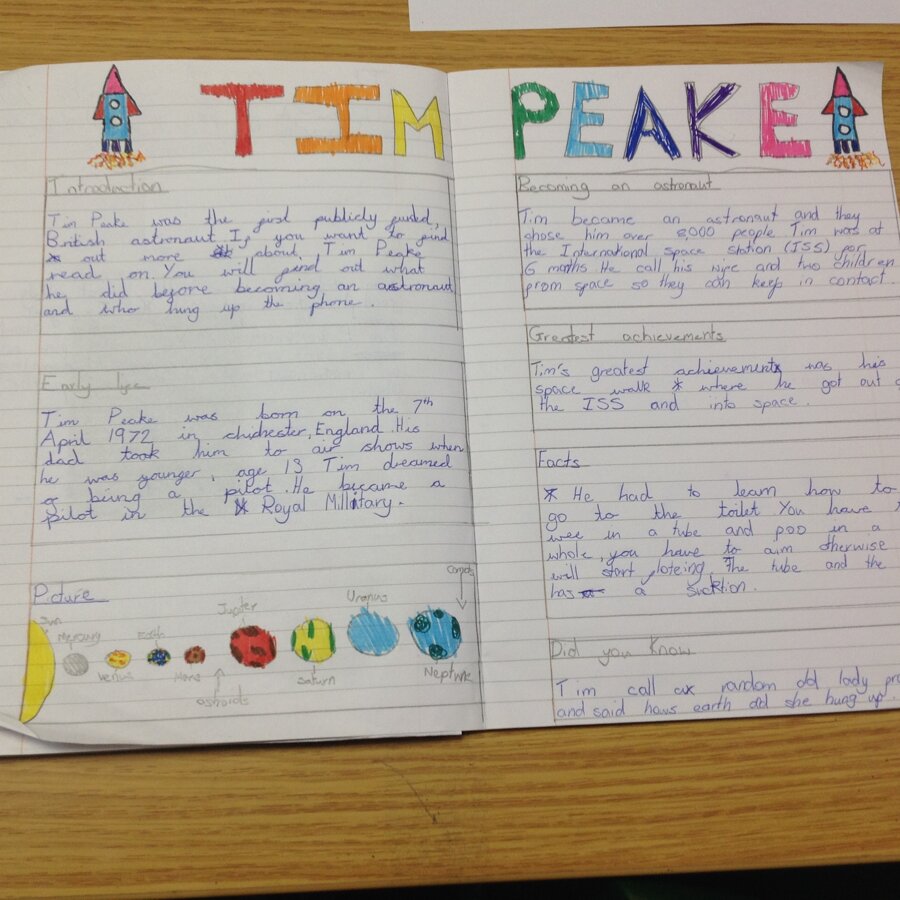 TIM PEAKE
Introduction
Tim Peake was the first publicly funded,
British astronaut If you want to find
out more about, Tim Peake
read on. You will find out what
he did before becoming an astronaut
and who hung up the phone.
Early life
Tim Peake was born on the 7th
April 1972 in chichester, England. His
dad took him to air shows when
he was younger, age 13 Tim dreamed
of being a pilot. He became a
pilot in the Royal Military.
Picture
Sun
Mercury
Venus
Earth
Mars
Jupiter
astroids
Saturn
Uranus
Neptune
Becoming an astronaut
Tim became an astronaut and they
chose him over 8000 people Tim was at
the International space station (ISS) for
6 months He call his wife and two children
from space so they can keep in contact.
Greatest achievements
Tim's greatest achievement was his
space walk * where he got out
the ISS and into space.
Facts
* He had to learn how to
go to the toilet You have
wee in a tube and poo in a
whole, you have to aim otherwise
will start floteing. The tube and the
has a suction.
Did you know
Tim call a random old lady
and said hows earth did she hung up